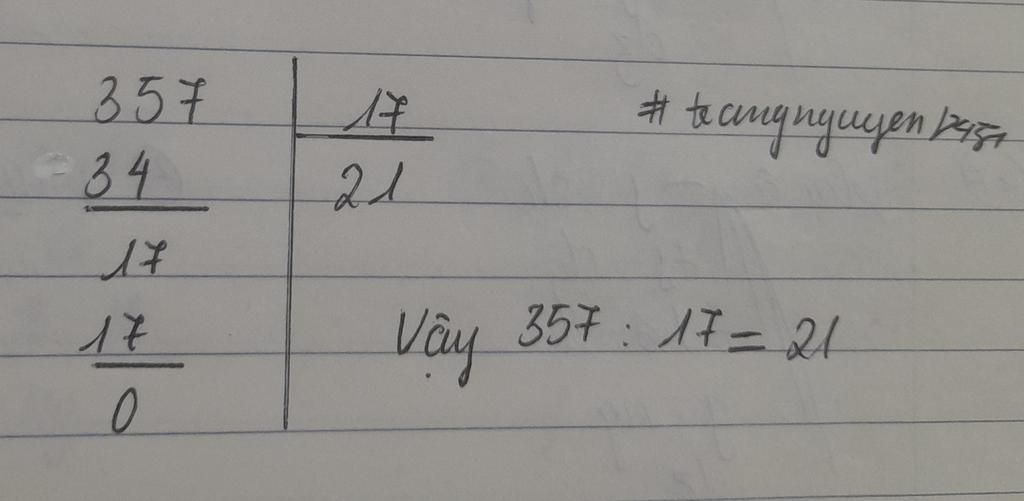 357 17 # trangnguyen
34 21
17
17 Vậy 357 : 17 = 21
0